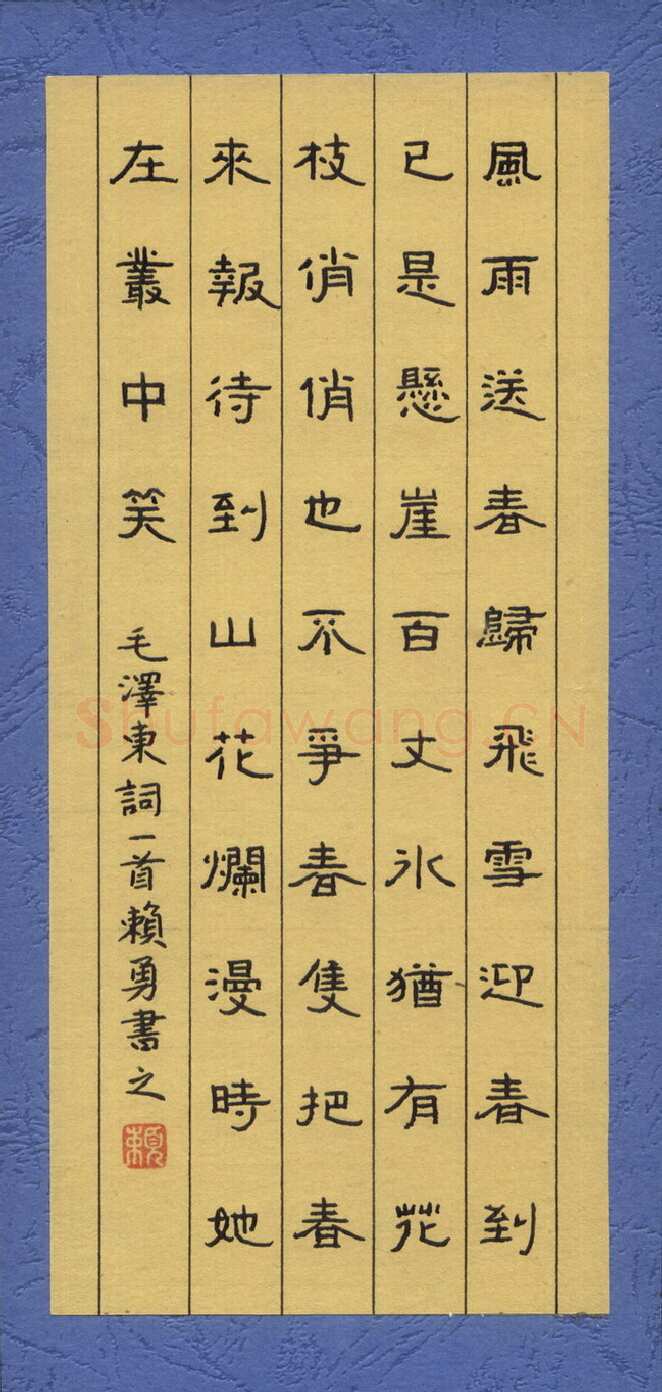 風雨送春歸飛雪迎春到
已是懸崖百丈冰猶有花
枝俏俏也不爭春隻把春
來報待到山花爛漫時她
在叢中笑
毛澤東詞一首賴勇書之
賴
Shufawang.CN